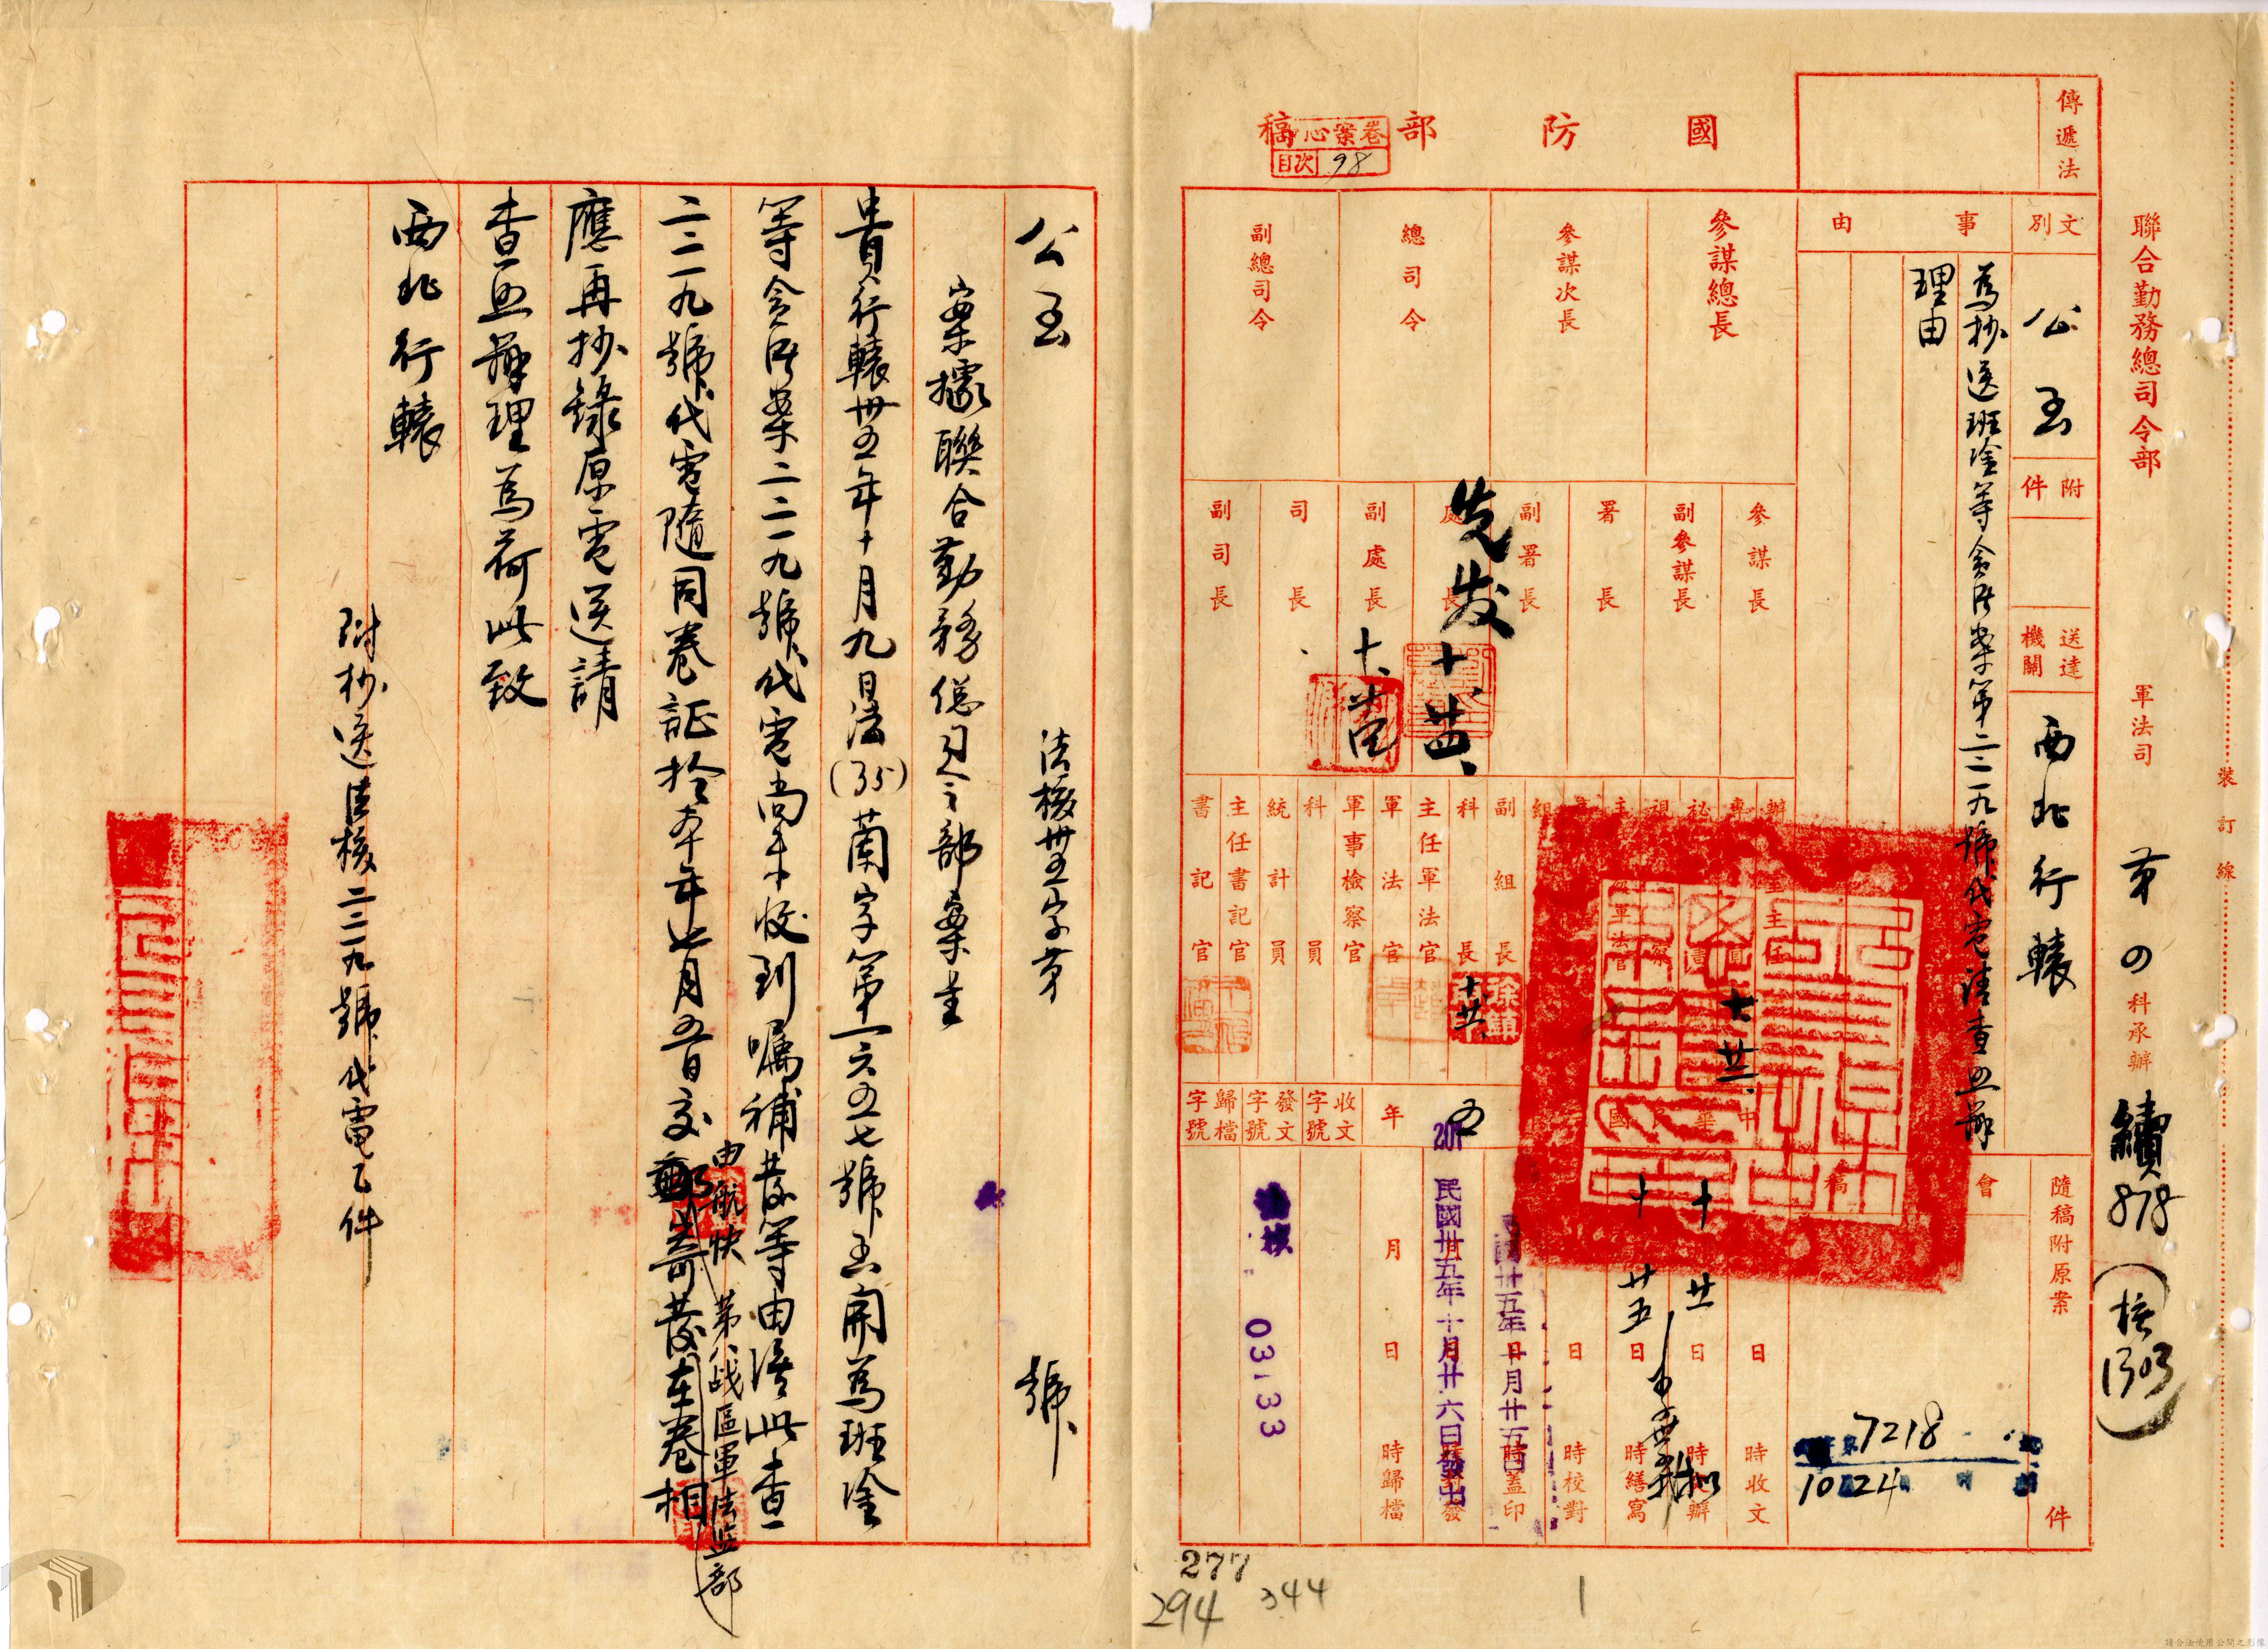 國防部稿
卷案心
目次 98
聯合勤務總司令部 軍法司 第四科承辦 續878
(核1303)
裝訂線
傳遞法
文別 公函
附件
送達機關 西北行轅
隨稿附原案 件
事由
為抄送班淦等貪污案第二二一九號代電請查照辦
理由
會稿
7218
10 24
參謀總長
參謀次長
總司令
副總司令
參謀長
副參謀長
署長
副署長
處長
副處長
司長
副司長
先发
十、廿四、
副組長
科長
主任軍法官
軍法官
軍事檢察官
科員
統計員
主任書記官
書記官
十廿二
中華民國
年 月 日
時收文
時校對
時繕寫
時蓋印
時歸檔
十 廿五
民國卅五年十月廿五日
民國卅五年十月廿六日
收文字號
發文字號
歸檔字號
03133
277
294
344
1
公函
法核卅五字第 號
案據聯合勤務總司令部案呈
貴行轅卅五年十月九日法(35)蘭字第一六四七號函開為班淦
等貪污案二二一九號代電尚未收到囑補發等由准此查
二二一九號代電隨同卷証於本年七月五日交郵寄發在卷相
由航快
第八战區軍法监部
應再抄錄原電送請
查照辦理為荷此致
西北行轅
附抄送法核二二一九號代電乙件
請合法使用公開之影像